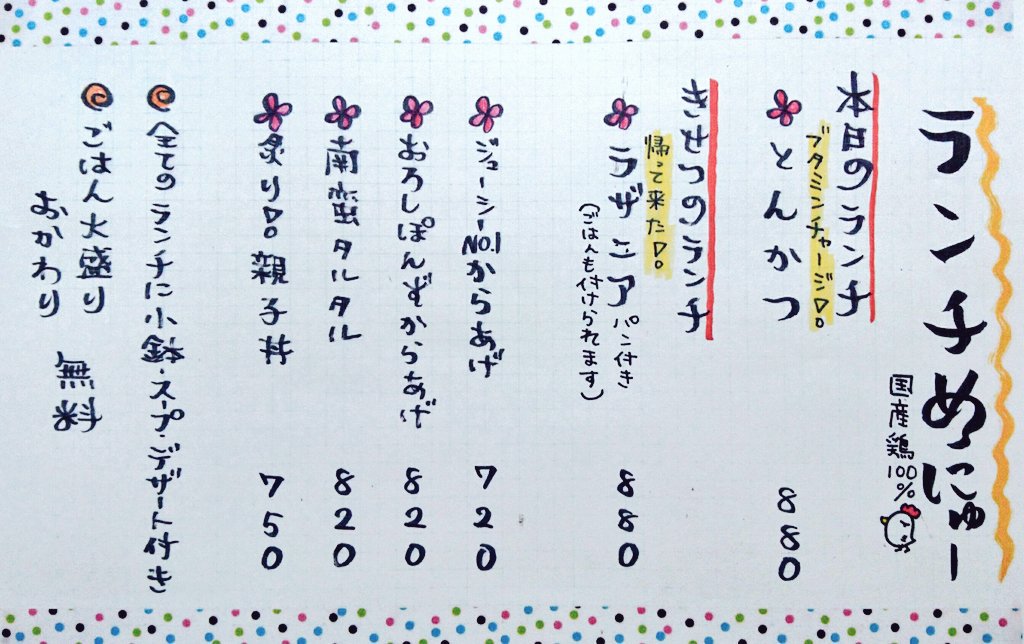 ランチめにゅー
国産鶏100%
本日のランチ
ブタミンチャージ!!
とんかつ 880
きせつのランチ
帰って来た!!
ラザニア パン付き 880
(ごはんも付けられます)
ジューシーNO.1からあげ 720
おろしぽんずからあげ 820
南蛮タルタル 820
炙り!!親子丼 750
全てのランチに小鉢・スープ・デザート付き
ごはん大盛り
おかわり
無料